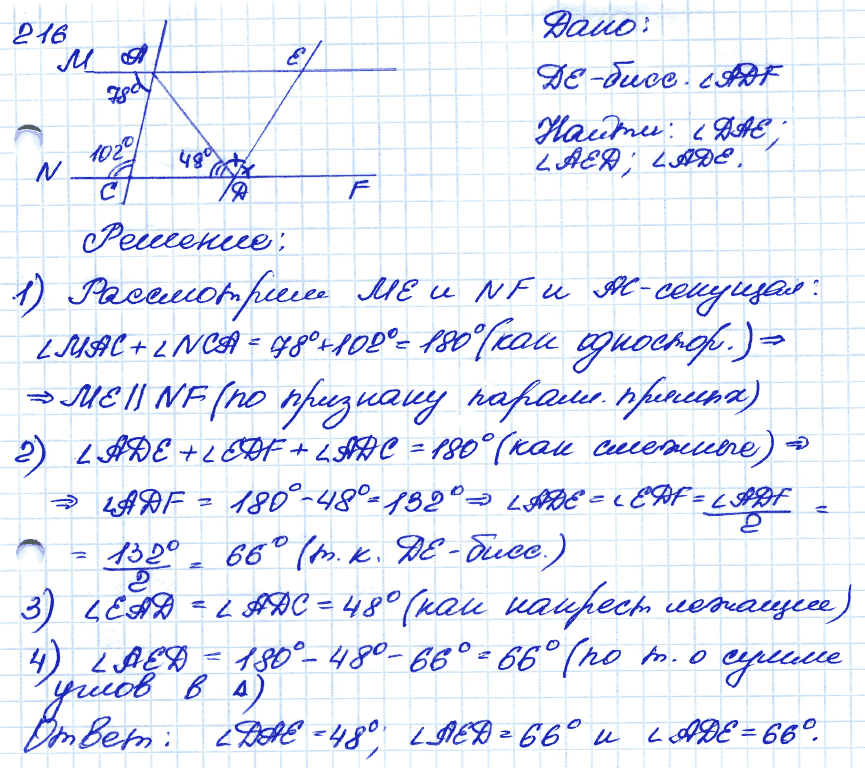 216
Дано:
M A E
DE-бисс. ∠ADF
78°
Найти: ∠DAE;
∠AED; ∠ADE.
102° 48° x x
N C D F
Решение:
1) Рассмотрим ME и NF и AC-секущая:
∠MAC + ∠NCA = 78°+102° = 180° (как одностор.) ⇒
⇒ ME || NF (по признаку паралл. прямых)
2) ∠ADE + ∠EDF + ∠ADC = 180° (как смежные) ⇒
⇒ ∠ADF = 180° - 48° = 132° ⇒ ∠ADE = ∠EDF = ∠ADF/2 =
= 132°/2 = 66° (т. к. DE-бисс.)
3) ∠EAD = ∠ADC = 48° (как накрест лежащие)
4) ∠AED = 180° - 48° - 66° = 66° (по т. о сумме
углов в Δ)
Ответ: ∠DAE = 48°; ∠AED = 66° и ∠ADE = 66°.